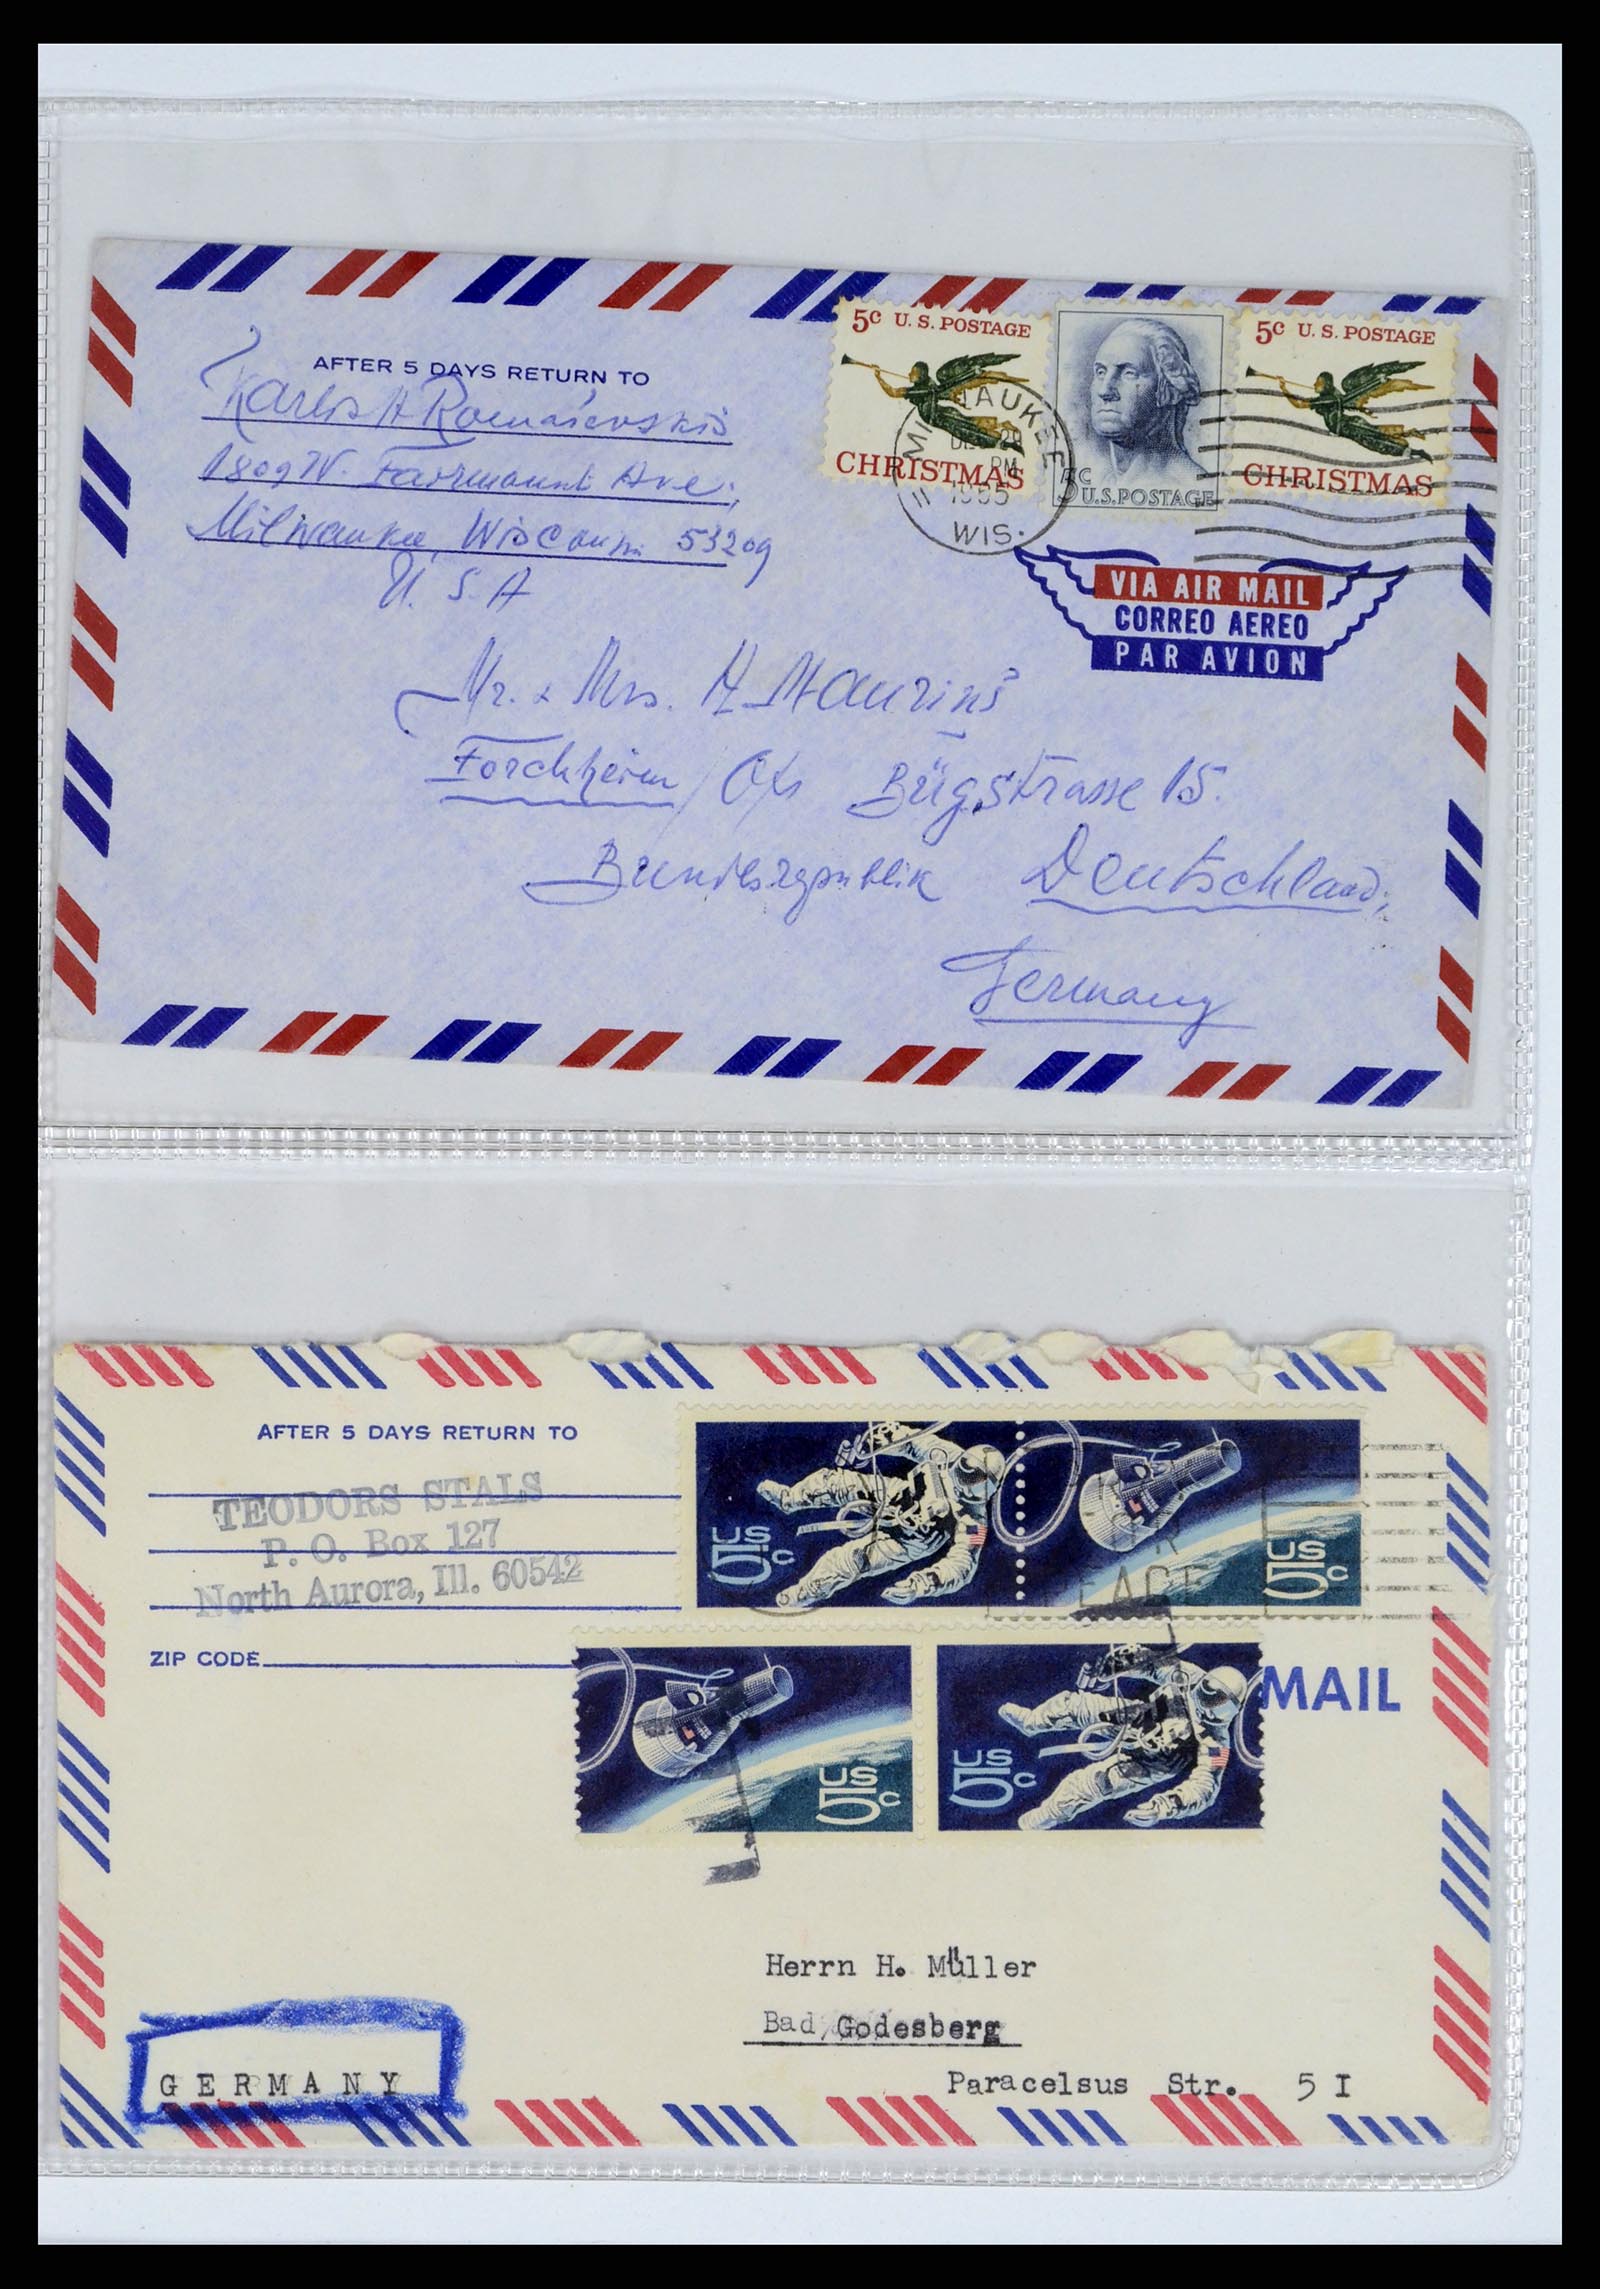 AFTER 5 DAYS RETURN TO
Karlis A Romaševskis
1809 W. Fairmount Ave.,
Milwaukee, Wisconsin 53209
U. S. A
5c U. S. POSTAGE
CHRISTMAS
5c
U.S. POSTAGE
5c U. S. POSTAGE
CHRISTMAS
PM
1965
WIS.
VIA AIR MAIL
CORREO AEREO
PAR AVION
Mr. & Mrs. A
Forchheim / Ofr Bügstrasse 15.
Bundesrepublik Deutschland,
Germany
AFTER 5 DAYS RETURN TO
TEODORS STALS
P. O. Box 127
North Aurora, Ill. 60542
ZIP CODE
US
5c
US
5c
US
5c
US
5c
MAIL
Herrn H. Müller
Bad Godesberg
Paracelsus Str. 5 I
GERMANY